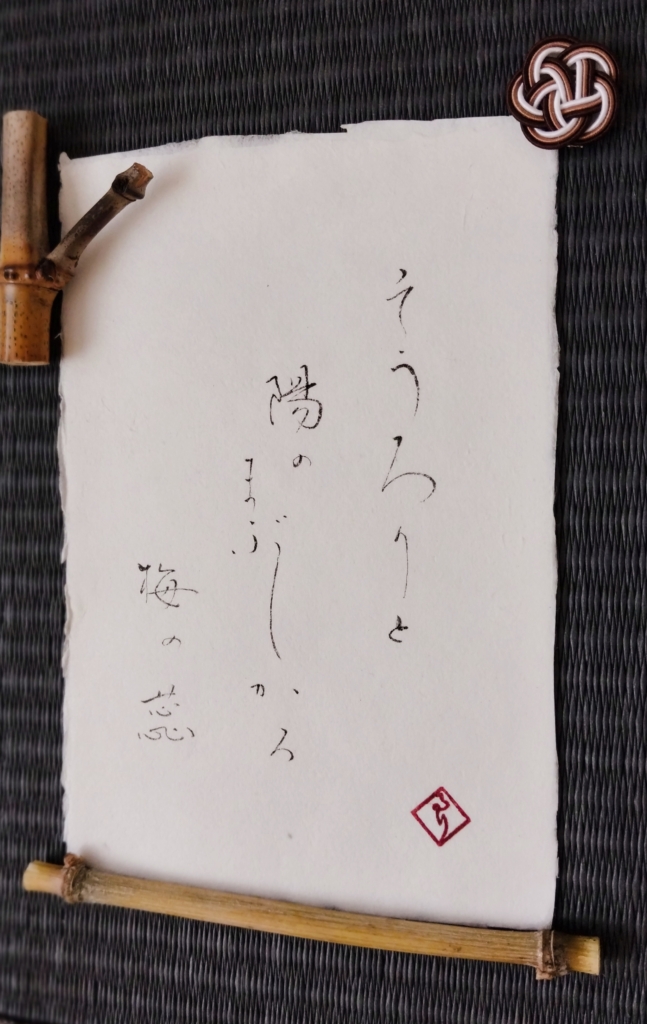 そうろりと
陽のまぶしかる
梅の蕊